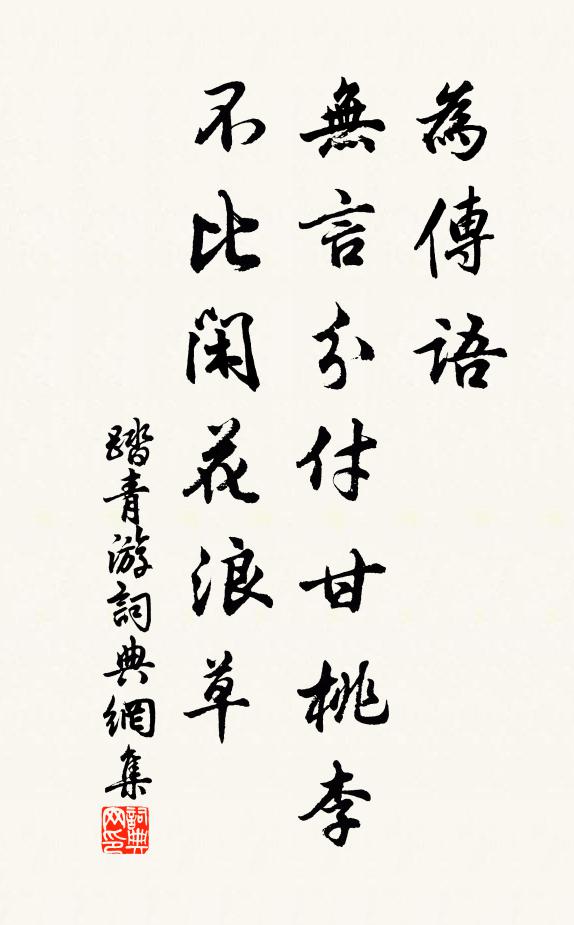 為傳語
無言分付甘桃李
不比閑花浪草
踏青游詞典網集
詞典网印